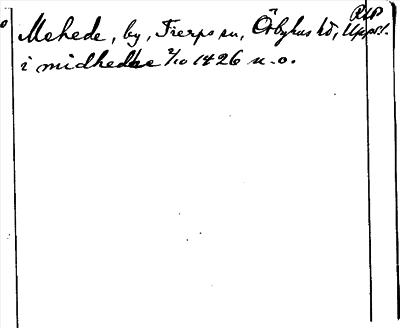 RAP
Mehede, by, Tierps sn, Örbyhus hd, Upps l.
i midhedhe 2/10 1426 u. o.